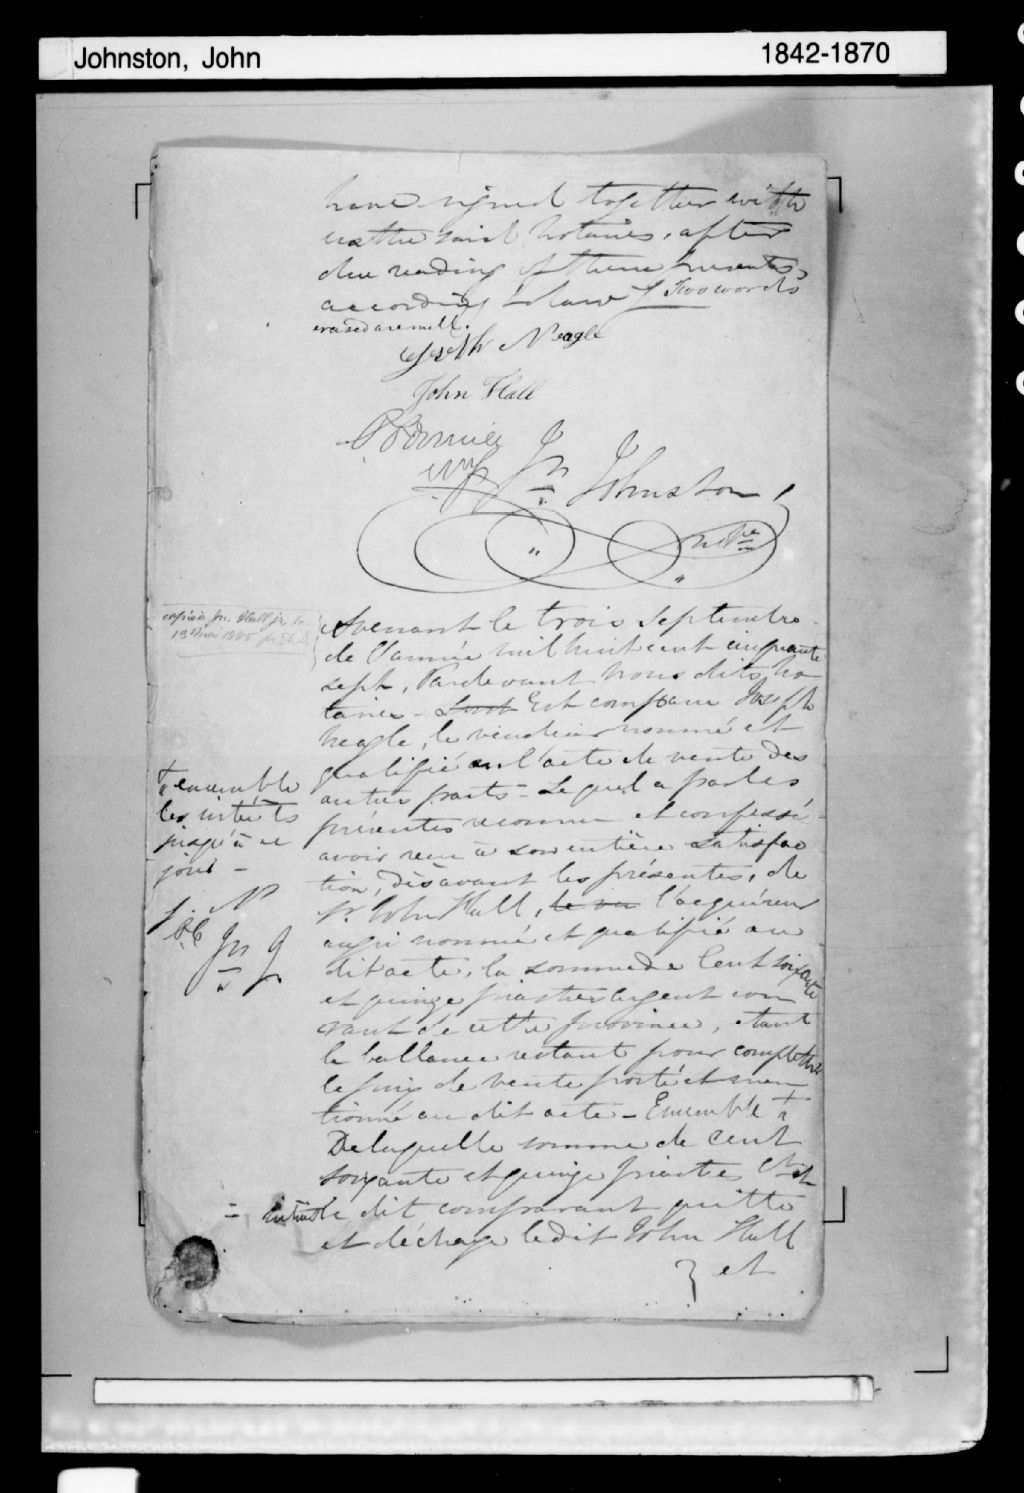 Johnston, John 1842-1870
have signed together with
us the said Notaries, after
due reading of these presents,
according to law / Two words
erased are null.
Joseph Neagle
John Hall
Jn Johnston,
N.P.
copie à Jn. Hall jr. le
13 Mai
Avenant le trois Septembre
de l'année mil huit cent cinquante
sept, Pardevant Nous dits No
taires - Sont Est comparu Joseph
Neagle, le vendeur nommé et
qualifié en l'acte de vente des
autres parts - Lequel a par les
présentes reconnu et confessé
avoir reçu à son entière satisfac
tion, dès avant les présentes, de
Sr. John Hall, l'acquéreur
aussi nommé et qualifié au
dit acte, la somme de Cent soixante
et quinze piastres argent cou
rant de cette Province, étant
la ballance restante pour completter
le prix de vente porté et men
tionné au dit acte - Ensemble
De laquelle somme de cent
soixante et quinze piastres et
intérêt le dit comparant quitte
et décharge le dit John Hall
et
ensemble
les intérêts
jusqu'à ce
jour -
J. N
Jn J